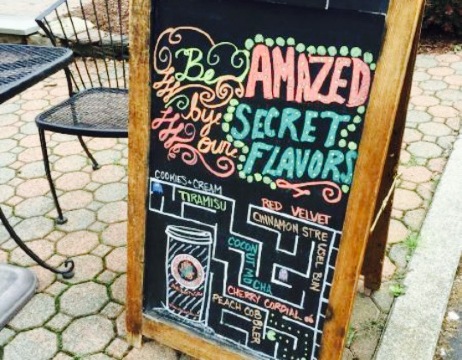 Be AMAZED
by our SECRET
FLAVORS
COOKIES+CREAM
TIRAMISU
RED VELVET
CINNAMON STREUSEL BUN
COCONUT MOCHA
CHERRY CORDIAL
PEACH COBBLER